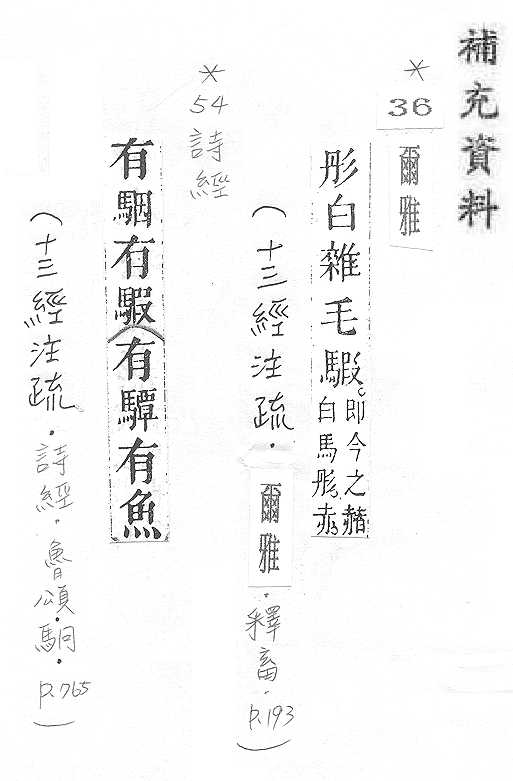 補充資料
*
36
爾雅
彤白雜毛騢。即今之赭白馬彤赤
(十三經注疏.爾雅.釋畜.p.193)
*
54詩經
有駰有騢(有驔有魚
(十三經注疏.詩經.魯頌.駉.p.765)